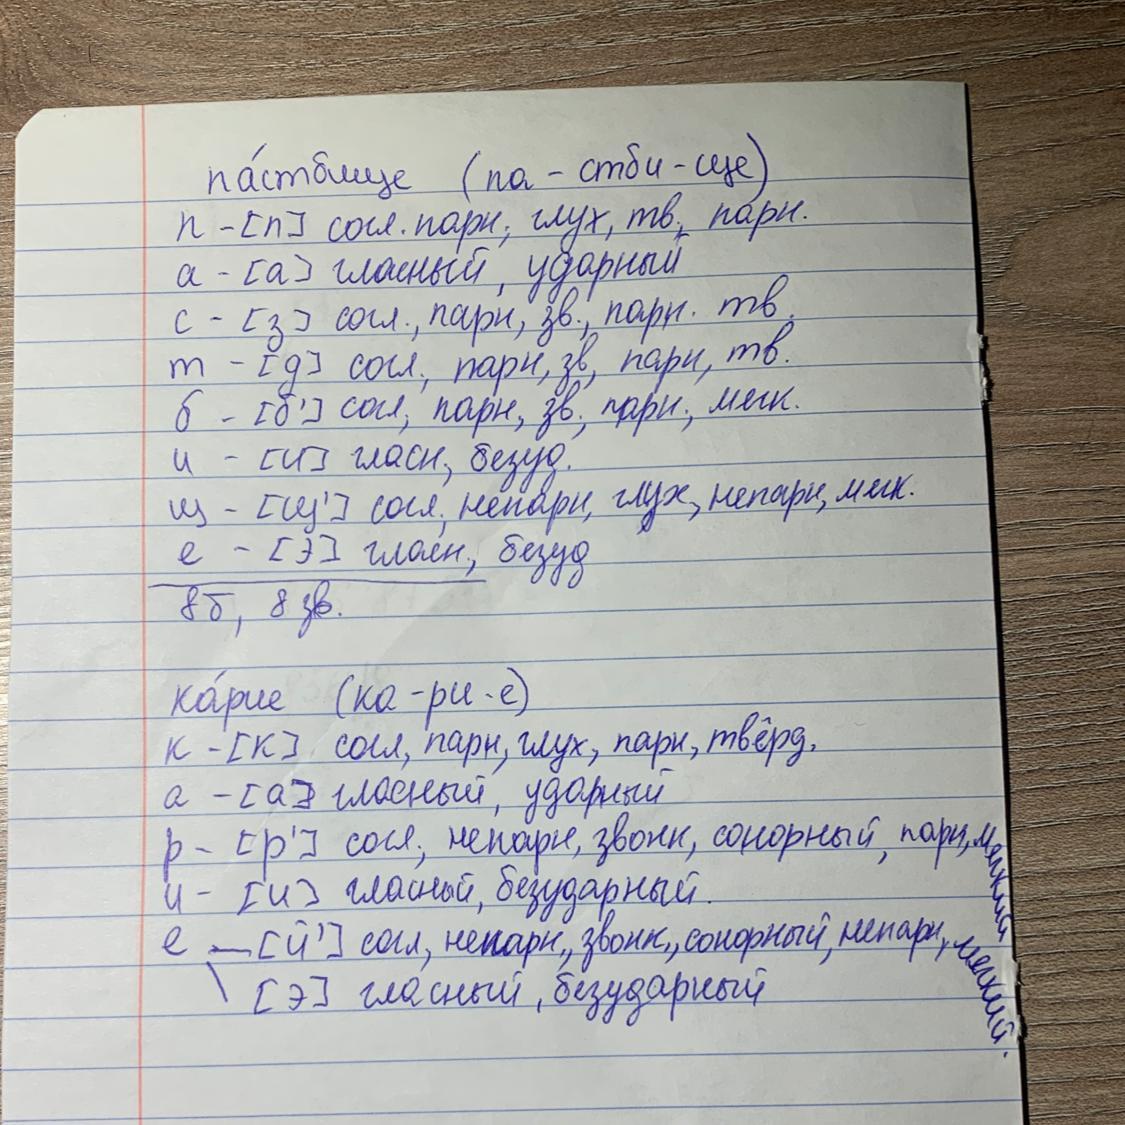 па́стбище (па - стби - ще)
п - [п] согл. парн, глух, тв, парн.
а - [а] гласный, ударный
с - [з] согл., парн, зв., парн. тв.
т - [д] согл, парн, зв, парн, тв.
б - [б'] согл, парн, зв, парн, мягк.
и - [и] гласн, безуд.
щ - [щ'] согл, непарн, глух, непарн, мягк.
е - [э] гласн, безуд
8б, 8 зв.
ка́рие (ка - ри - е)
к - [к] согл, парн, глух, парн, твёрд.
а - [а] гласный, ударный
р - [р'] согл, непарн, звонк, сонорный, парн, мягкий
и - [и] гласный, безударный.
е - [й'] согл, непарн, звонк, сонорный, непарн, мягкий.
\ [э] гласный, безударный